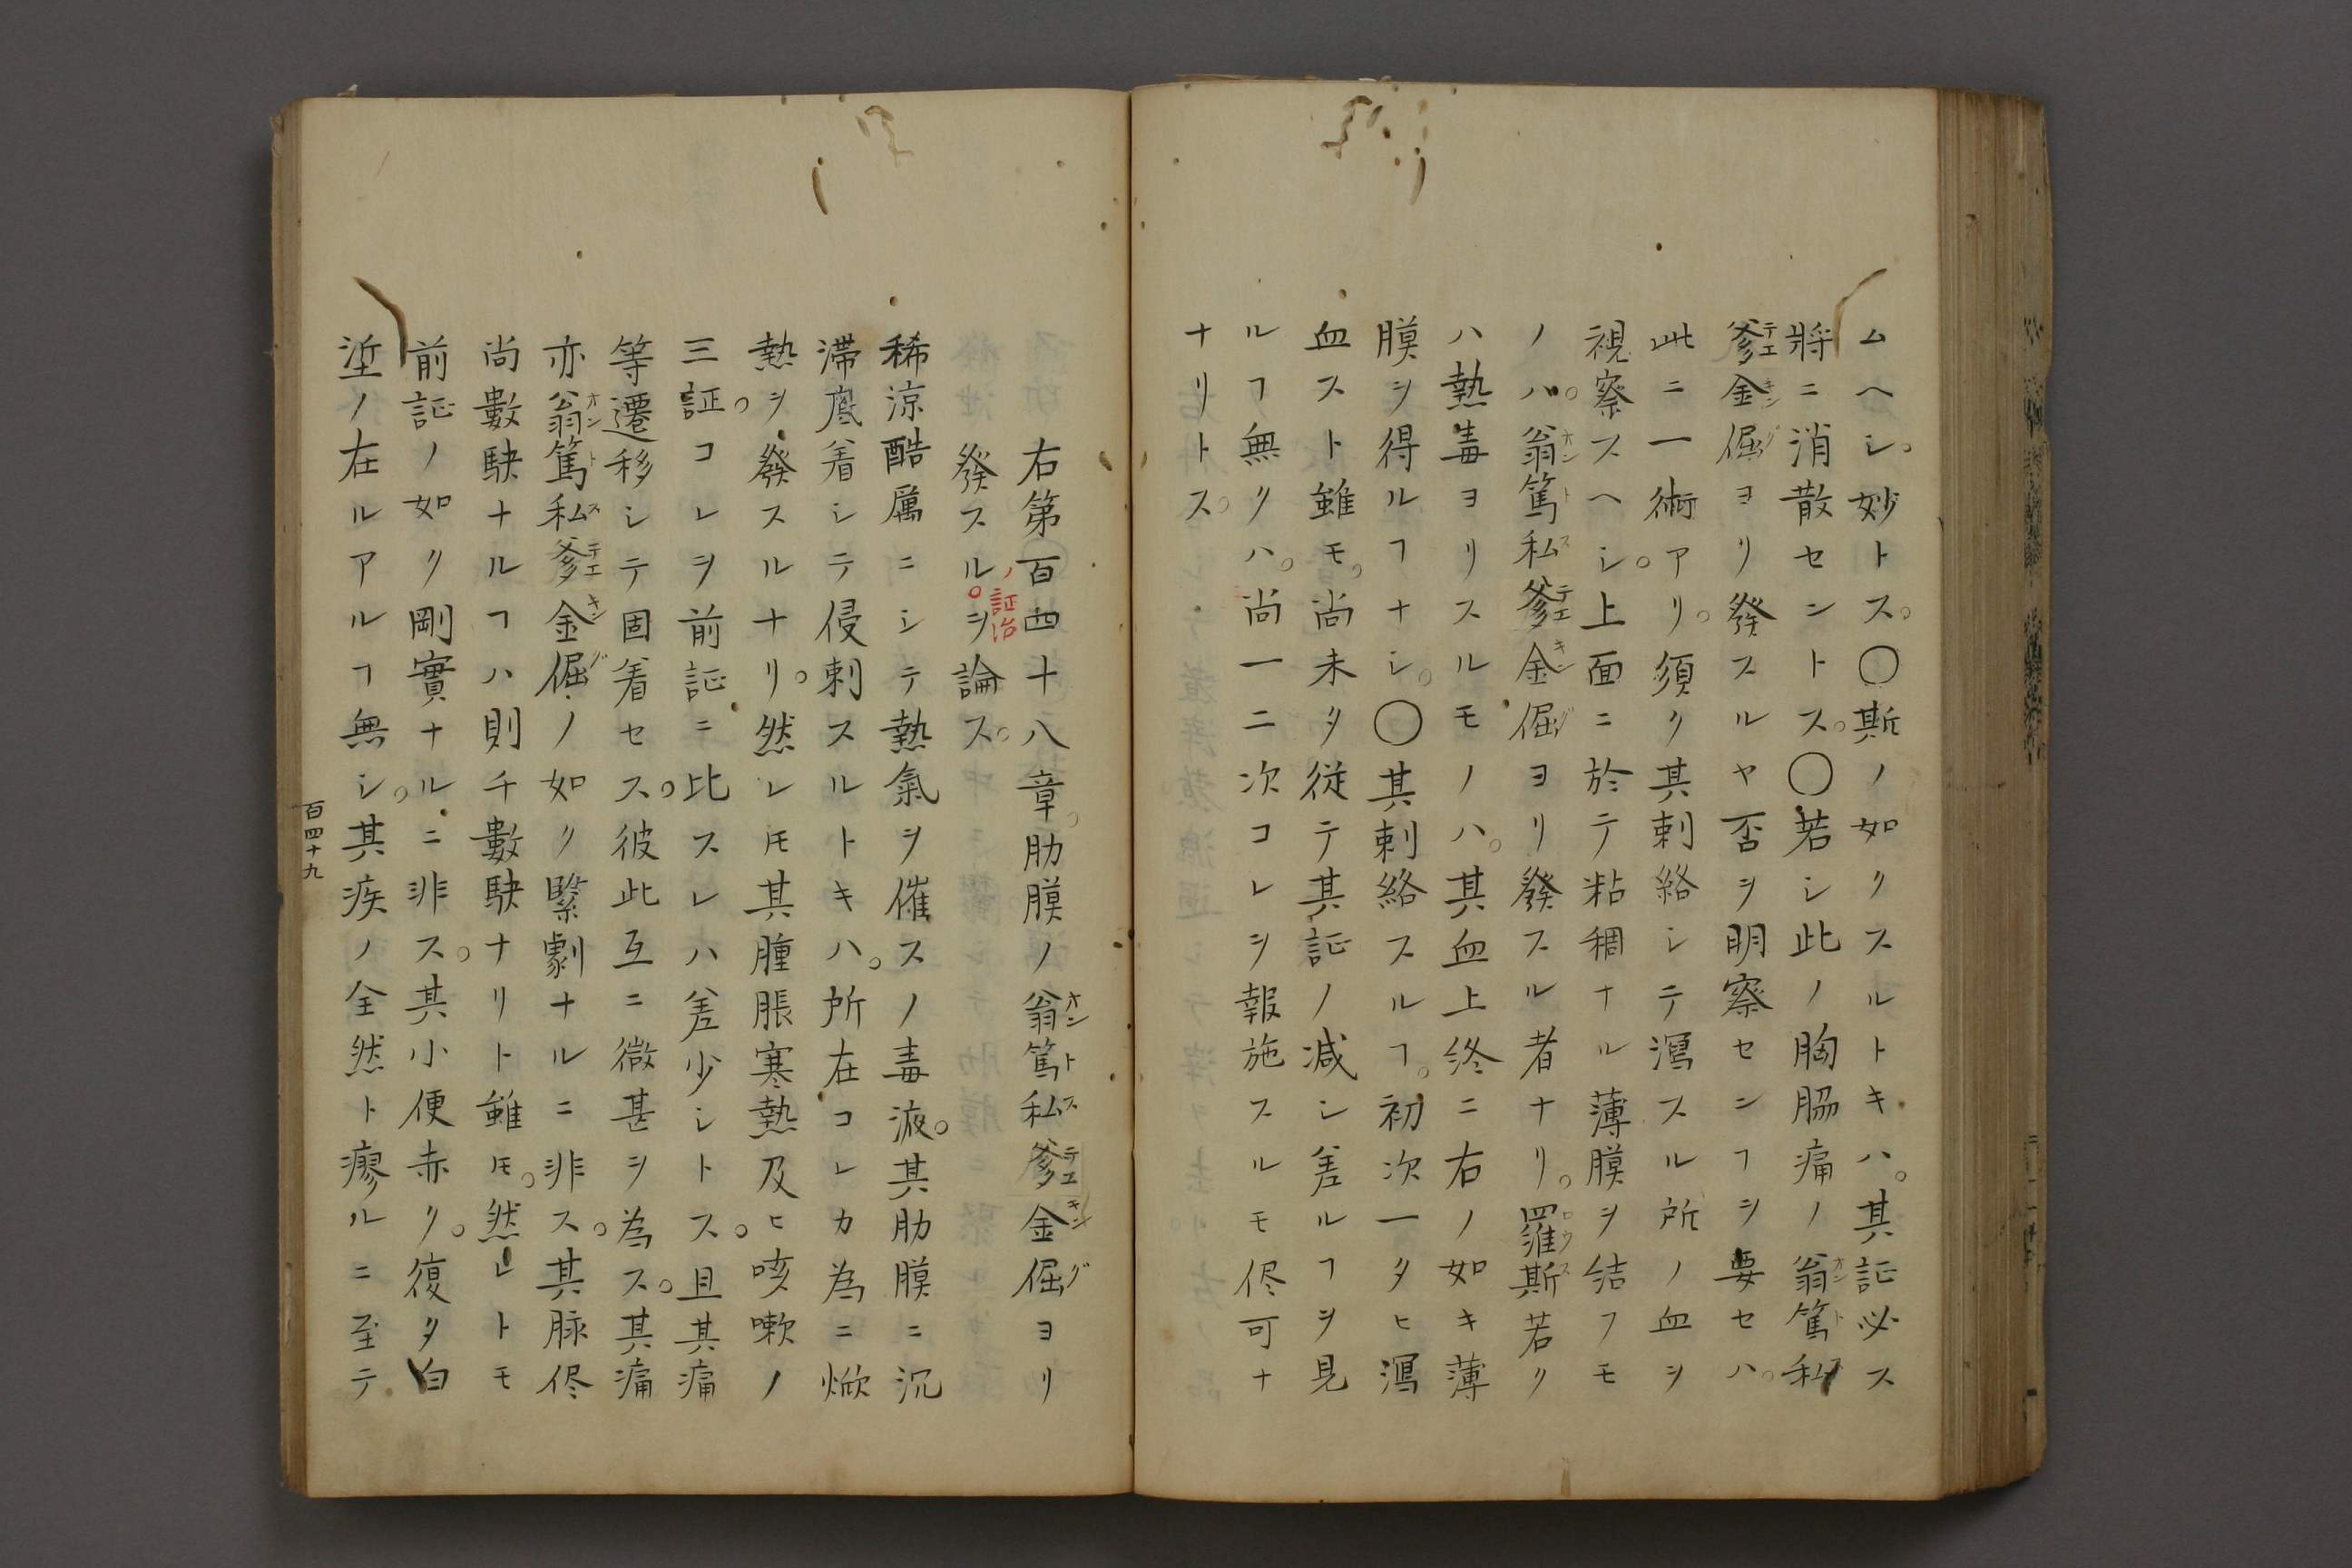 ムヘシ。妙トス。〇斯ノ如クスルトキハ。其証必ス
將ニ消散セントス。〇若シ此ノ胸脇痛ノ翁篤私
爹金倔ヨリ發スルヤ否ヲ明察センヿヲ要セハ。
此ニ一術アリ。須ク其刺絡シテ瀉スル所ノ血ヲ
視察スヘシ。上面ニ於テ粘稠ナル薄膜ヲ結フモ
ノハ。翁篤私爹金倔ヨリ發スル者ナリ。羅斯若ク
ハ熱毒ヨリスルモノハ。其血上終ニ右ノ如キ薄
膜ヲ得ルヿナシ。〇其刺絡スルヿ。初次一タヒ瀉
血スト雖モ。尚未タ從テ其証ノ減シ差ルヿヲ見
ルヿ無クハ。尚一二次コレヲ報施スルモ侭可ナ
ナリトス。
右第百四十八章。肋膜ノ翁篤私爹金倔ヨリ
發スルノ証治ヲ論ス。
稀涼酷厲ニシテ熱氣ヲ催スノ毒液。其肋膜ニ沉
滞底着シテ侵刺スルトキハ。所在コレカ為ニ焮
熱ヲ發スルナリ。然レ𪜈其腫脹寒熱及ヒ咳嗽ノ
三証コレヲ前証ニ比スレハ差少シトス。且其痛
等遷移シテ固着セス。彼此互ニ微甚ヲ為ス。其痛
亦翁篤私爹金倔ノ如ク緊劇ナルニ非ス。其脉侭
尚數駃ナルヿハ則チ數駃ナリト雖𪜈。然レトモ
前証ノ如ク剛實ナルニ非ス。其小便赤ク。復タ白
垽ノ在ルアルヿ無シ。其疾ノ全然ト瘳ルニ至テ
百四十九